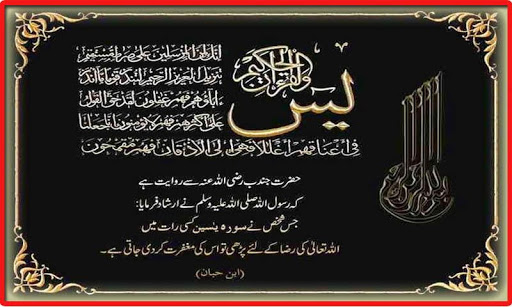 يس
والقرآن الحكيم
إنك لمن المرسلين على صراط مستقيم
تنزيل العزيز الرحيم لتنذر قوما ما أنذر
آباؤهم فهم غافلون لقد حق القول
على أكثرهم فهم لا يؤمنون إنا جعلنا
في أعناقهم أغلالا فهي إلى الأذقان فهم مقمحون
بسم الله الرحمن الرحيم
حضرت جندب رضی اللہ عنہ سے روایت ہے
کہ رسول اللہ صلی اللہ علیہ وسلم نے ارشاد فرمایا:
جس شخص نے سورہ یٰسین کسی رات میں
اللہ تعالیٰ کی رضا کے لئے پڑھی تو اس کی مغفرت کر دی جاتی ہے۔
(ابن حبان)